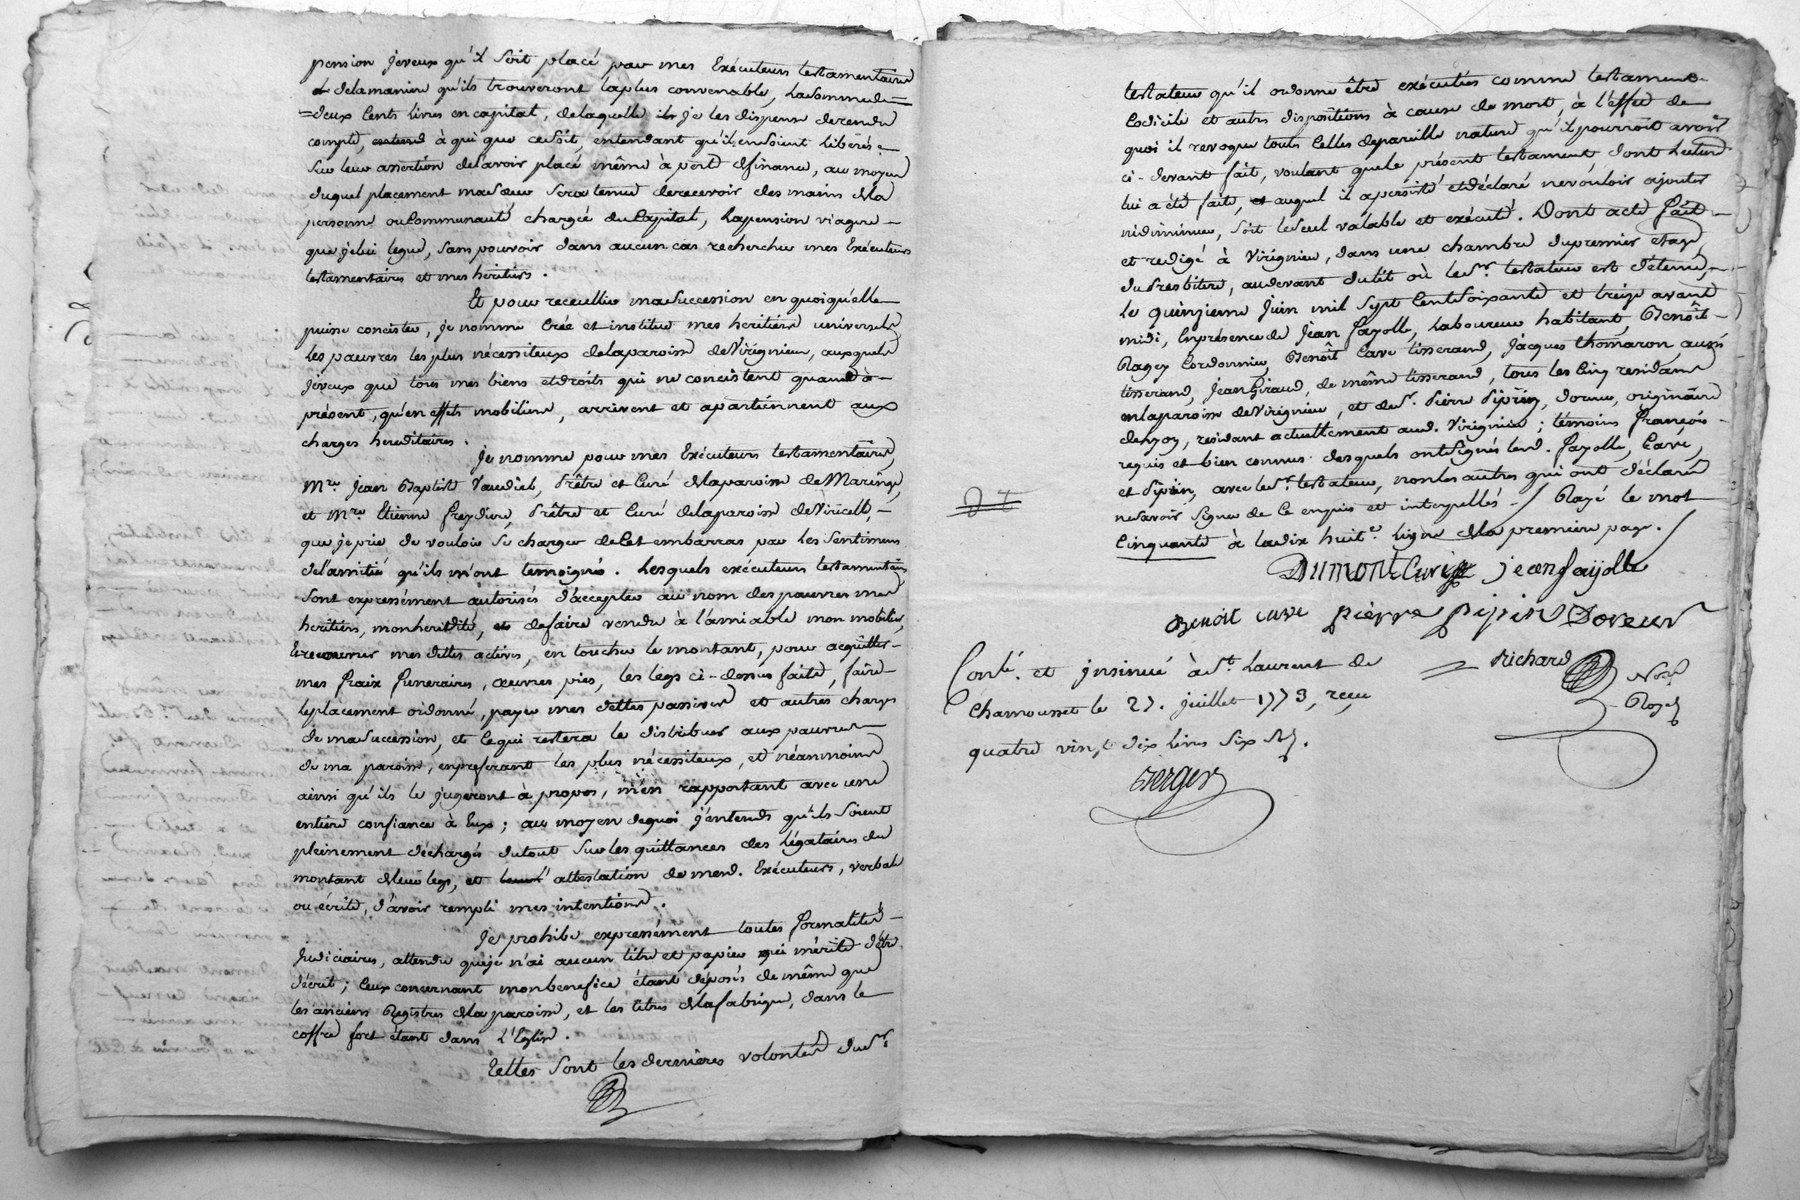 pension je veux qu'il soit placé par mes Exécuteurs testamentaires
de la maniere qu'ils trouveront la plus convenable, la somme de
deux Cents livres en capital, de laquelle je les dispense de rendre
compte à qui que ce soit, entendant qu'ils en soient libérés
sur leur assertion de l'avoir placé même à perte de finance, au moyen
duquel placement ma soeur sera tenue de recevoir des mains de la
personne ou Communauté chargée du Capital, la pension viagere
que je lui legue, sans pouvoir dans aucun cas rechercher mes Exécuteurs
testamentaires et mes heritiers.
Et pour recueillir ma succession en quoi qu'elle
puisse concister, je nomme Crée et institue mes heritiers universels
les pauvres les plus nécessiteux de la paroisse de Virignieu, auxquels
je veux que tous mes biens et droits qui ne concistent quand à
présent, qu'en effets mobiliers, arrivent et apartiennent aux
charges hereditaires.
Je nomme pour mes Exécuteurs testamentaires,
Mre Jean Baptiste Vaudiel, Prêtre et Curé de la paroisse de Maringe,
et Mre Etienne freydiere, Prêtre et Curé de la paroisse de Viricelle,
que je prie de vouloir se charger de Cet embarras par les sentimens
de l'amitié qu'ils m'ont temoignés. Lesquels exécuteurs testamentaires
sont expressément autorisés d'accepter au nom des pauvres mes
heritiers, mon heredité, de faire vendre à l'amiable mon mobilier,
Exiger mes dettes actives, en toucher le montant, pour acquitter
mes fraix funeraires, oeuvres pies, les legs ci-dessus faits, faire
le placement ordonné, payer mes dettes passives et autres charges
de ma succession, et ce qui restera le distribuer aux pauvres
de ma paroisse, en preferant les plus nécessiteux, et néanmoins
ainsi qu'ils le jugeront à propos, m'en rapportant avec une
entiere confiance à Eux; au moyen de quoi j'entends qu'ils soient
pleinement déchargés du tout sur les quittances des légataires du
montant de leurs legs, et attestation de mesd. Exécuteurs, verbale
ou écrite, d'avoir rempli mes intentions.
Je prohibe expressément toutes formalités
Judiciaires, attendu que je n'ai aucun titre et papier qui mérite d'être
décrit; Ceux concernant mon benefice étant déposés de même que
les anciens Registres de la paroisse, et les titres de la fabrique, dans le
coffre fort étant dans l'Eglise.
Telles sont les dernières volontés du Sr
testateur qu'il ordonne être exécutées comme testament
Codicile et autres dispositions à cause de mort, à l'effet de
quoi il revoque toutes Celles de pareille nature qu'il pourroit avoir
ci-devant fait, voulant que le présent testament dont lecture
lui a été faite, auquel il a persisté et déclaré ne vouloir ajouter
ni diminuer, soit le seul valable et exécuté. Dont acte fait
et redigé à Virignieu, dans une chambre du premier etage
du Presbitere, au devant du lit où le Sr testateur est détenu,
le quinzieme Juin mil sept Cent soixante et treize avant
midi, En présence de Jean fayolle, laboureur habitant, Benoît
Ragey Cordonnier, Benoît Cave tisserand, Jacques thomaron aussi
tisserand, Jean Giraud, de même tisserand, tous les Cinq residans
en la paroisse de Virignieu, et de Sr Pierre Pipin, doreur, originaire
de Lyon, residant actuellement aud. Virignieu; témoins françois
requis et bien connus desquels ont signés lesd. fayolle, Cave,
et Pipin, avec le Sr testateur, non les autres qui ont déclaré
ne savoir signer de Ce enquis et interpellés. / Rayé le mot
Cinquante à la dix huite ligne de la premiere page. /
Dumont Curé jean faÿolle
Benoit cave pièrre pipin Doreur
Richard
Nore
Royal
Conlé. et insinué à St Laurent de
Chamousset le 27. juillet 1773, reçu
quatre vingt dix livres six s.
Berger